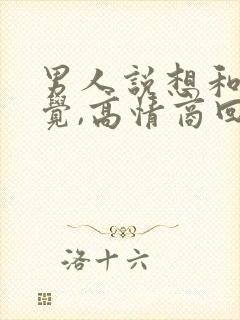 男人説想和
覺,高情商回
洛十六